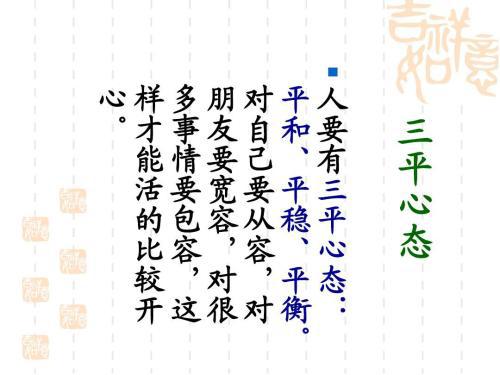 吉祥如意
三平心态
人要有三平心态：
平和、平稳、平衡。
对自己要从容，对
朋友要宽容，对很
多事情要包容，这
样才能活的比较开
心。